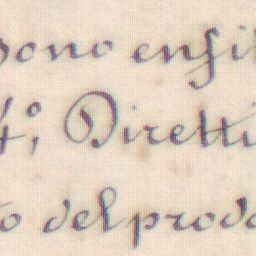 pono enfi
4º, Diretti
to del prodo